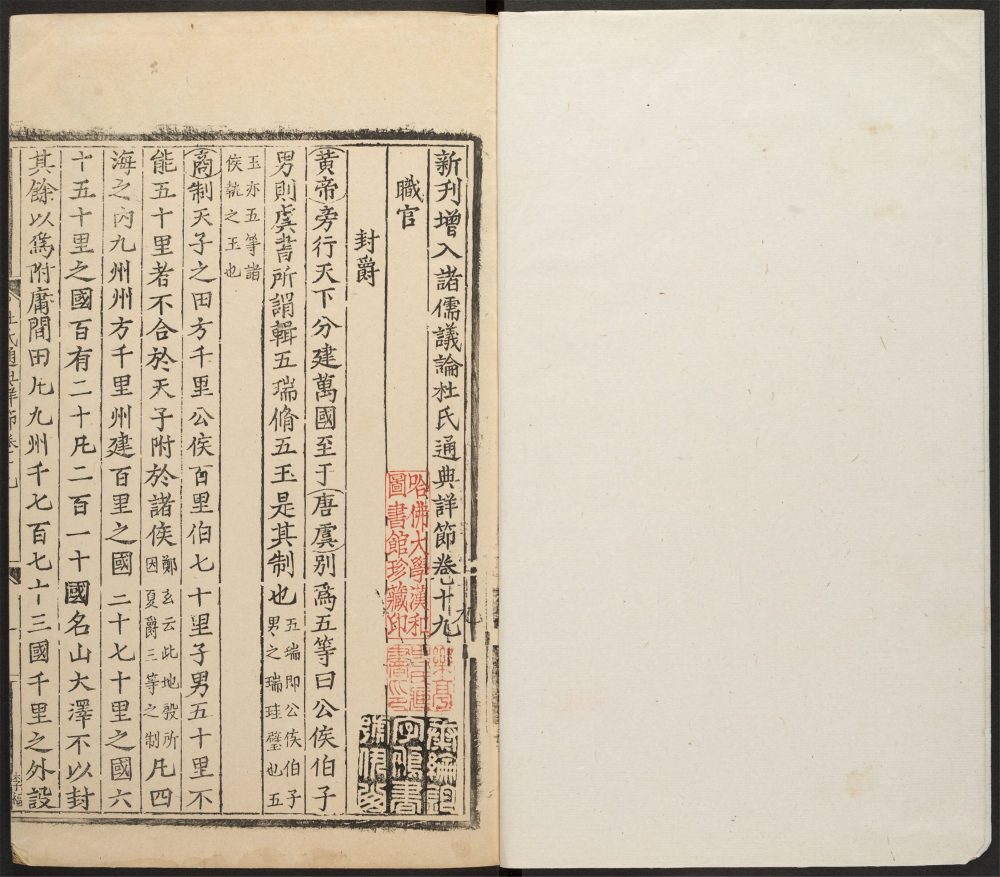 新刋增入諸儒議論杜氏通典詳節卷十九
職官
封爵
黃帝旁行天下分建萬國至于唐虞別爲五等曰公侯伯子
男則虞書所謂輯五瑞脩五玉是其制也五瑞即公侯伯子男之瑞珪璧也五
玉亦五等諸侯執之玉也
商制天子之田方千里公侯百里伯七十里子男五十里不
能五十里者不合於天子附於諸侯鄭玄云此地殷所因夏爵三等之制凡四
海之內九州州方千里州建百里之國三十七十里之國六
十五十里之國百有二十凡二百一十國名山大澤不以封
其餘以爲附庸閒田凡九州千七百七十三國千里之外設
杜氏通典詳節卷十九
哈佛大學漢和
圖書館珍藏印